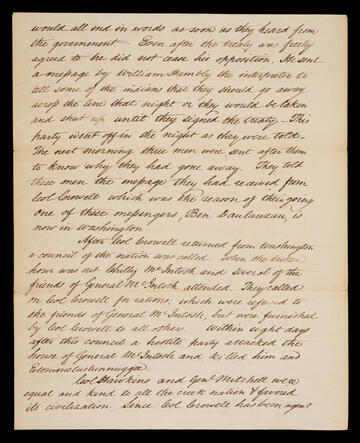 would all end in words as soon as they heard from
the government Even after the treaty was freely
agreed to he did not cease his opposition. He sent
a message by William Hambly the interpreter to
tell some of the indians that they should go away
across the line that night or they would be taken
and shut up until they signed the treaty - This
party went off in the night as they were told -
The next morning three men were sent after them
to know why they had gone away. They told
these men the message they had received from
Col Crowell which was the reason of their going
One of these messengers, Ben is
now in Washington
After Col Crowell returned from Washington
a council of the nation was called. When the broken
hour was out Chilly McIntosh and several of the
friends of General McIntosh attended. They called
on Col Crowell for rations; which were refused to
the friends of General McIntosh, but were furnished
by Col Crowell to all others. Within eight days
after this council a hostile party attacked the
house of General McIntosh and killed him and
Etommetustunnuggee.
Col Hawkins and Genl Mitchell were
equal and kind to all the creek nation & favored
its civilization. Since Col Crowell has been agent